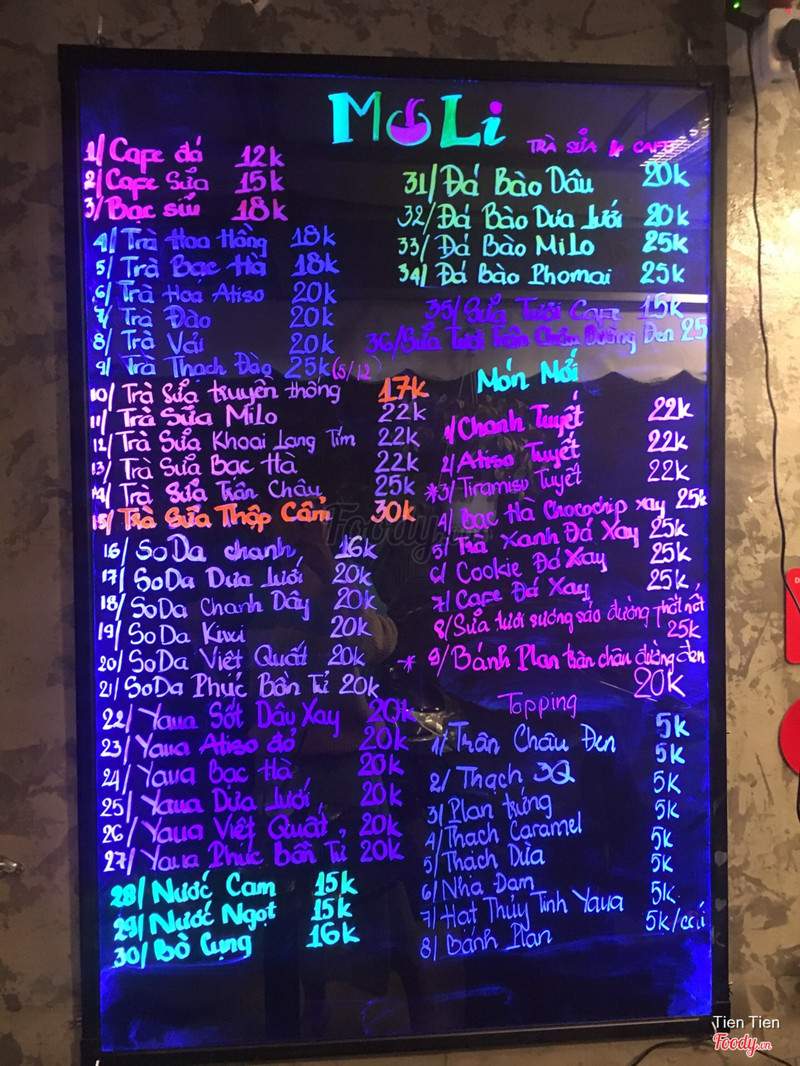 MoLi
TRÀ SỮA & CAFE
1/ Cafe đá 12k
2/ Cafe Sữa 15k
3/ Bạc sỉu 18k
4/ Trà Hoa Hồng 18k
5/ Trà Bạc Hà 18k
6/ Trà Hoa Atiso 20k
7/ Trà Đào 20k
8/ Trà Vải 20k
9/ Trà Thạch Đào 25k (S/12)
10/ Trà Sữa truyền thống 17k
11/ Trà Sữa MiLo 22k
12/ Trà Sữa Khoai Lang Tím 22k
13/ Trà Sữa Bạc Hà 22k
14/ Trà Sữa Trân Châu 25k
15/ Trà Sữa Thập Cẩm 30k
16/ SoDa chanh 16k
17/ SoDa Dưa Lưới 20k
18/ SoDa Chanh Dây 20k
19/ SoDa Kiwi 20k
20/ SoDa Việt Quất 20k
21/ SoDa Phúc Bồn Tử 20k
22/ Yaua Sốt Dâu Xay 20k
23/ Yaua Atiso đỏ 20k
24/ Yaua Bạc Hà 20k
25/ Yaua Dưa Lưới 20k
26/ Yaua Việt Quất 20k
27/ Yaua Phúc Bồn Tử 20k
28/ Nước Cam 15k
29/ Nước Ngọt 15k
30/ Bò Cụng 16k
31/ Đá Bào Dâu 20k
32/ Đá Bào Dưa Lưới 20k
33/ Đá Bào MiLo 25k
34/ Đá Bào Phomai 25k
35/ Sữa Tươi Cafe 15k
36/ Sữa Tươi Trân Châu Đường Đen 25
Món Mới
1/ Chanh Tuyết 22k
2/ Atiso Tuyết 22k
*3/ Tiramisu Tuyết 22k
4/ Bạc Hà Chocochip xay 25k
5/ Trà Xanh Đá Xay 25k
6/ Cookie Đá Xay 25k
7/ Cafe Đá Xay 25k
8/ Sữa tươi sương sáo đường Thốt nốt
25k
* 9/ Bánh Plan trân châu đường đen
20k
Topping
1/ Trân Châu Đen 5k
2/ Thạch 3Q 5k
3/ Plan trứng 5k
4/ Thạch Caramel 5k
5/ Thạch Dừa 5k
6/ Nha Đam 5k
7/ Hạt Thủy Tinh Yaua 5k
8/ Bánh Plan 5k/cái
Foody
Tien Tien
Foody.vn